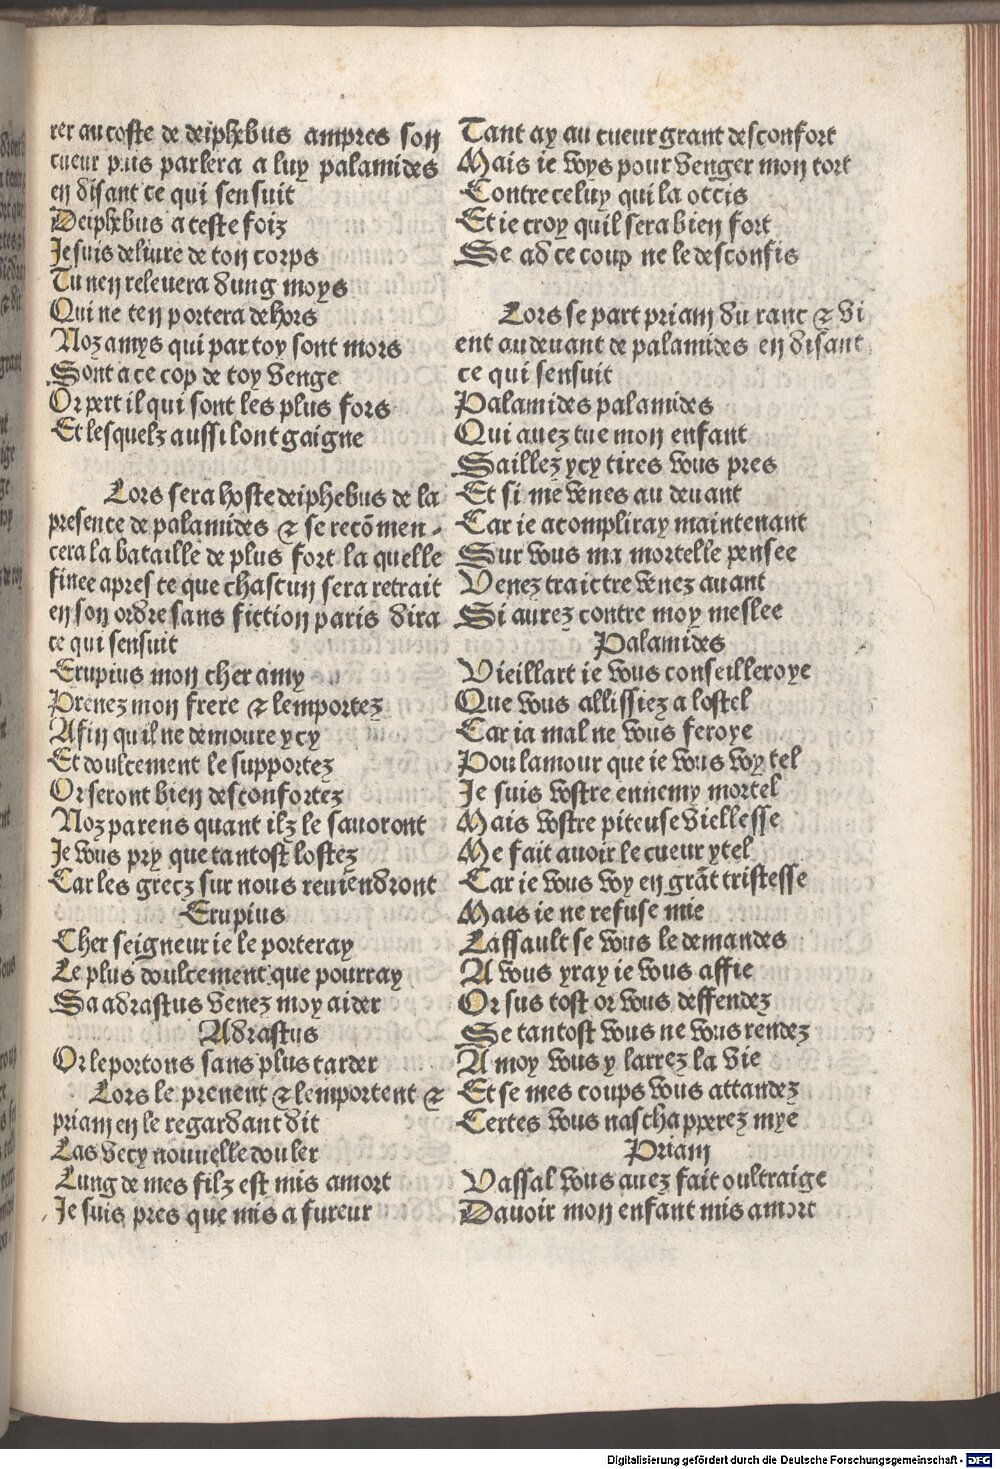 rer au coste de deiphebus ampres son
cueur puis parlera a luy palamides
en disant ce qui sensuit
Deiphebus a ceste foiz
Je suis deliure de ton corps
Tu nen releuera dung moys
Qui ne ten portera dehors
Noz amys qui par toy sont mors
Sont a ce cop de toy venge
Or pert il qui sont les plus fors
Et lesquelz aussi lont gaigne
Lors sera hoste deiphebus de la
presence de palamides & se recõmen-
cera la bataille de plus fort la quelle
finee apres ce que chascun sera retrait
en son ordre sans fiction paris dira
ce qui sensuit
Erupius mon cher amy
Prenez mon frere & lemportez
Afin quil ne demoure ycy
Et doulcement le supportez
Or seront bien desconfortez
Noz parens quant ilz le sauoront
Je vous pry que tantost lostez
Car les grecz sur nous reuiendront
Erupius
Cher seigneur ie le porteray
Le plus doulcement que pourray
Sa adrastus venez moy aider
Adrastus
Or le portons sans plus tarder
Lors le prenent & lemportent &
priam en le regardant dit
Las vecy nouuelle douler
Lung de mes filz est mis a mort
Je suis pres que mis a fureur
Tant ay au cueur grant desconfort
Mais ie voys pour venger mon tort
Contre celuy qui la occis
Et ie croy quil sera bien fort
Se ad ce coup ne le desconfis
Lors se part priam du ranc & vi
ent au deuant de palamides en disant
ce qui sensuit
Palamides palamides
Qui auez tue mon enfant
Saillez ycy tires vous pres
Et si me venes au deuant
Car ie acompliray maintenant
Sur vous ma mortelle pensee
Venez traictre venez auant
Si aurez contre moy meslee
Palamides
Vieillart ie vous conseilleroye
Que vous allissiez a lostel
Car ia mal ne vous feroye
Pou lamour que ie vous voy tel
Je suis vostre ennemy mortel
Mais vostre piteuse viellesse
Me fait auoir le cueur ytel
Car ie vous voy en grãt tristesse
Mais ie ne refuse mie
Lassault se vous le demandes
A vous yray ie vous affie
Or sus tost or vous deffendez
Se tantost vous ne vous rendez
A moy vous y larrez la vie
Et se mes coups vous attandez
Certes vous naschapperez mye
Priam
Vassal vous auez fait oultraige
Dauoir mon enfant mis a mort
Digitalisierung gefördert durch die Deutsche Forschungsgemeinschaft - DFG